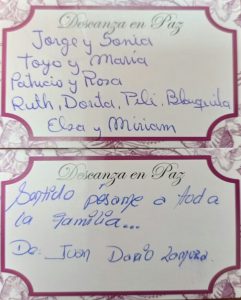 Descanza en Paz
Jorge y Sonia
Toyo y María
Patricio y Rosa
Ruth, Dorda, Peli, Blanquita
Elsa y Miriam
Descanza en Paz
Sentido pésame a toda
la familia...
De: Juan Darío